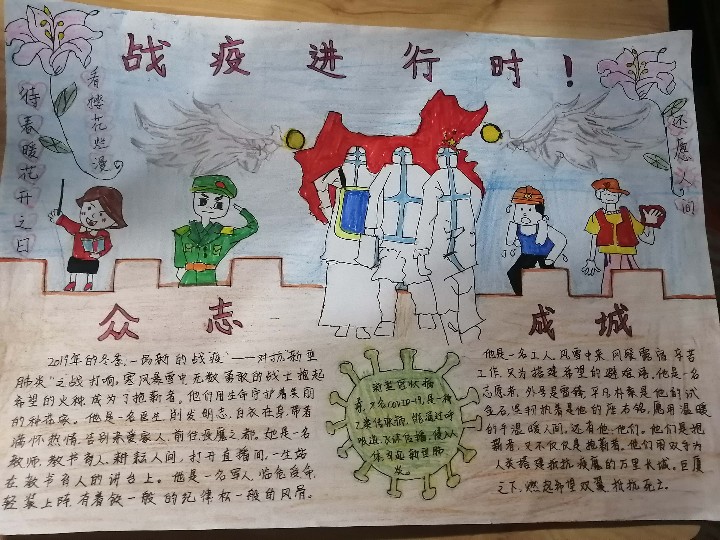 战疫进行时！
待春暖花开之日
看樱花烂漫
还愿人间
众志成城
2019年的冬季,一场新的战疫——对抗"新型
肺炎"之战打响,寒风暴雪中无数勇敢的战士擒起
希望的火种成为了抱薪者。他们用生命守护着美丽
的种花家。他是一名医生,剃发明志,白衣在身,带着
满怀热情,告别亲爱家人,前往疫魔之都。她是一名
教师,教书育人,耕耘人间,打开直播间,一生站
在教书育人的讲台上。他是一名军人,临危受命,
轻装上阵,有着铁一般的纪律松一般的风骨。
新型冠状病
毒,又名COVID-19,是一种
乙类传染病,能通过呼
吸道,飞沫传播,侵入人
体引起新型肺
炎。
他是一名工人,风雪中来,风餐露宿,辛苦
工作,只为搭建希望的避难塔。他是一名
志愿者,外号是雷锋,平凡朴素是他们的试
金石,坚持执着是他的座右铭,愿用温暖
的手温暖人间。还有他-他们。他们是抱
薪者,又不仅仅是抱薪者。他们用双手为
人类搭建抵抗疫魔的万里长城。巨厦
之下,燃起希望双翼抵抗死亡。